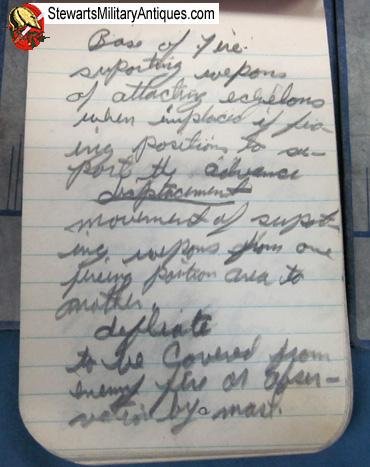 StewartsMilitaryAntiques.com
Base of Fire.
suporting wepons
of attacting echelons
when implaced if fir-
ing positions to su-
port the advance
displacement
movement of suport-
ing wepons from one
fireing position area to
another.
defliate
to be Covered from
enemy fire or obser-
vation by a mask.